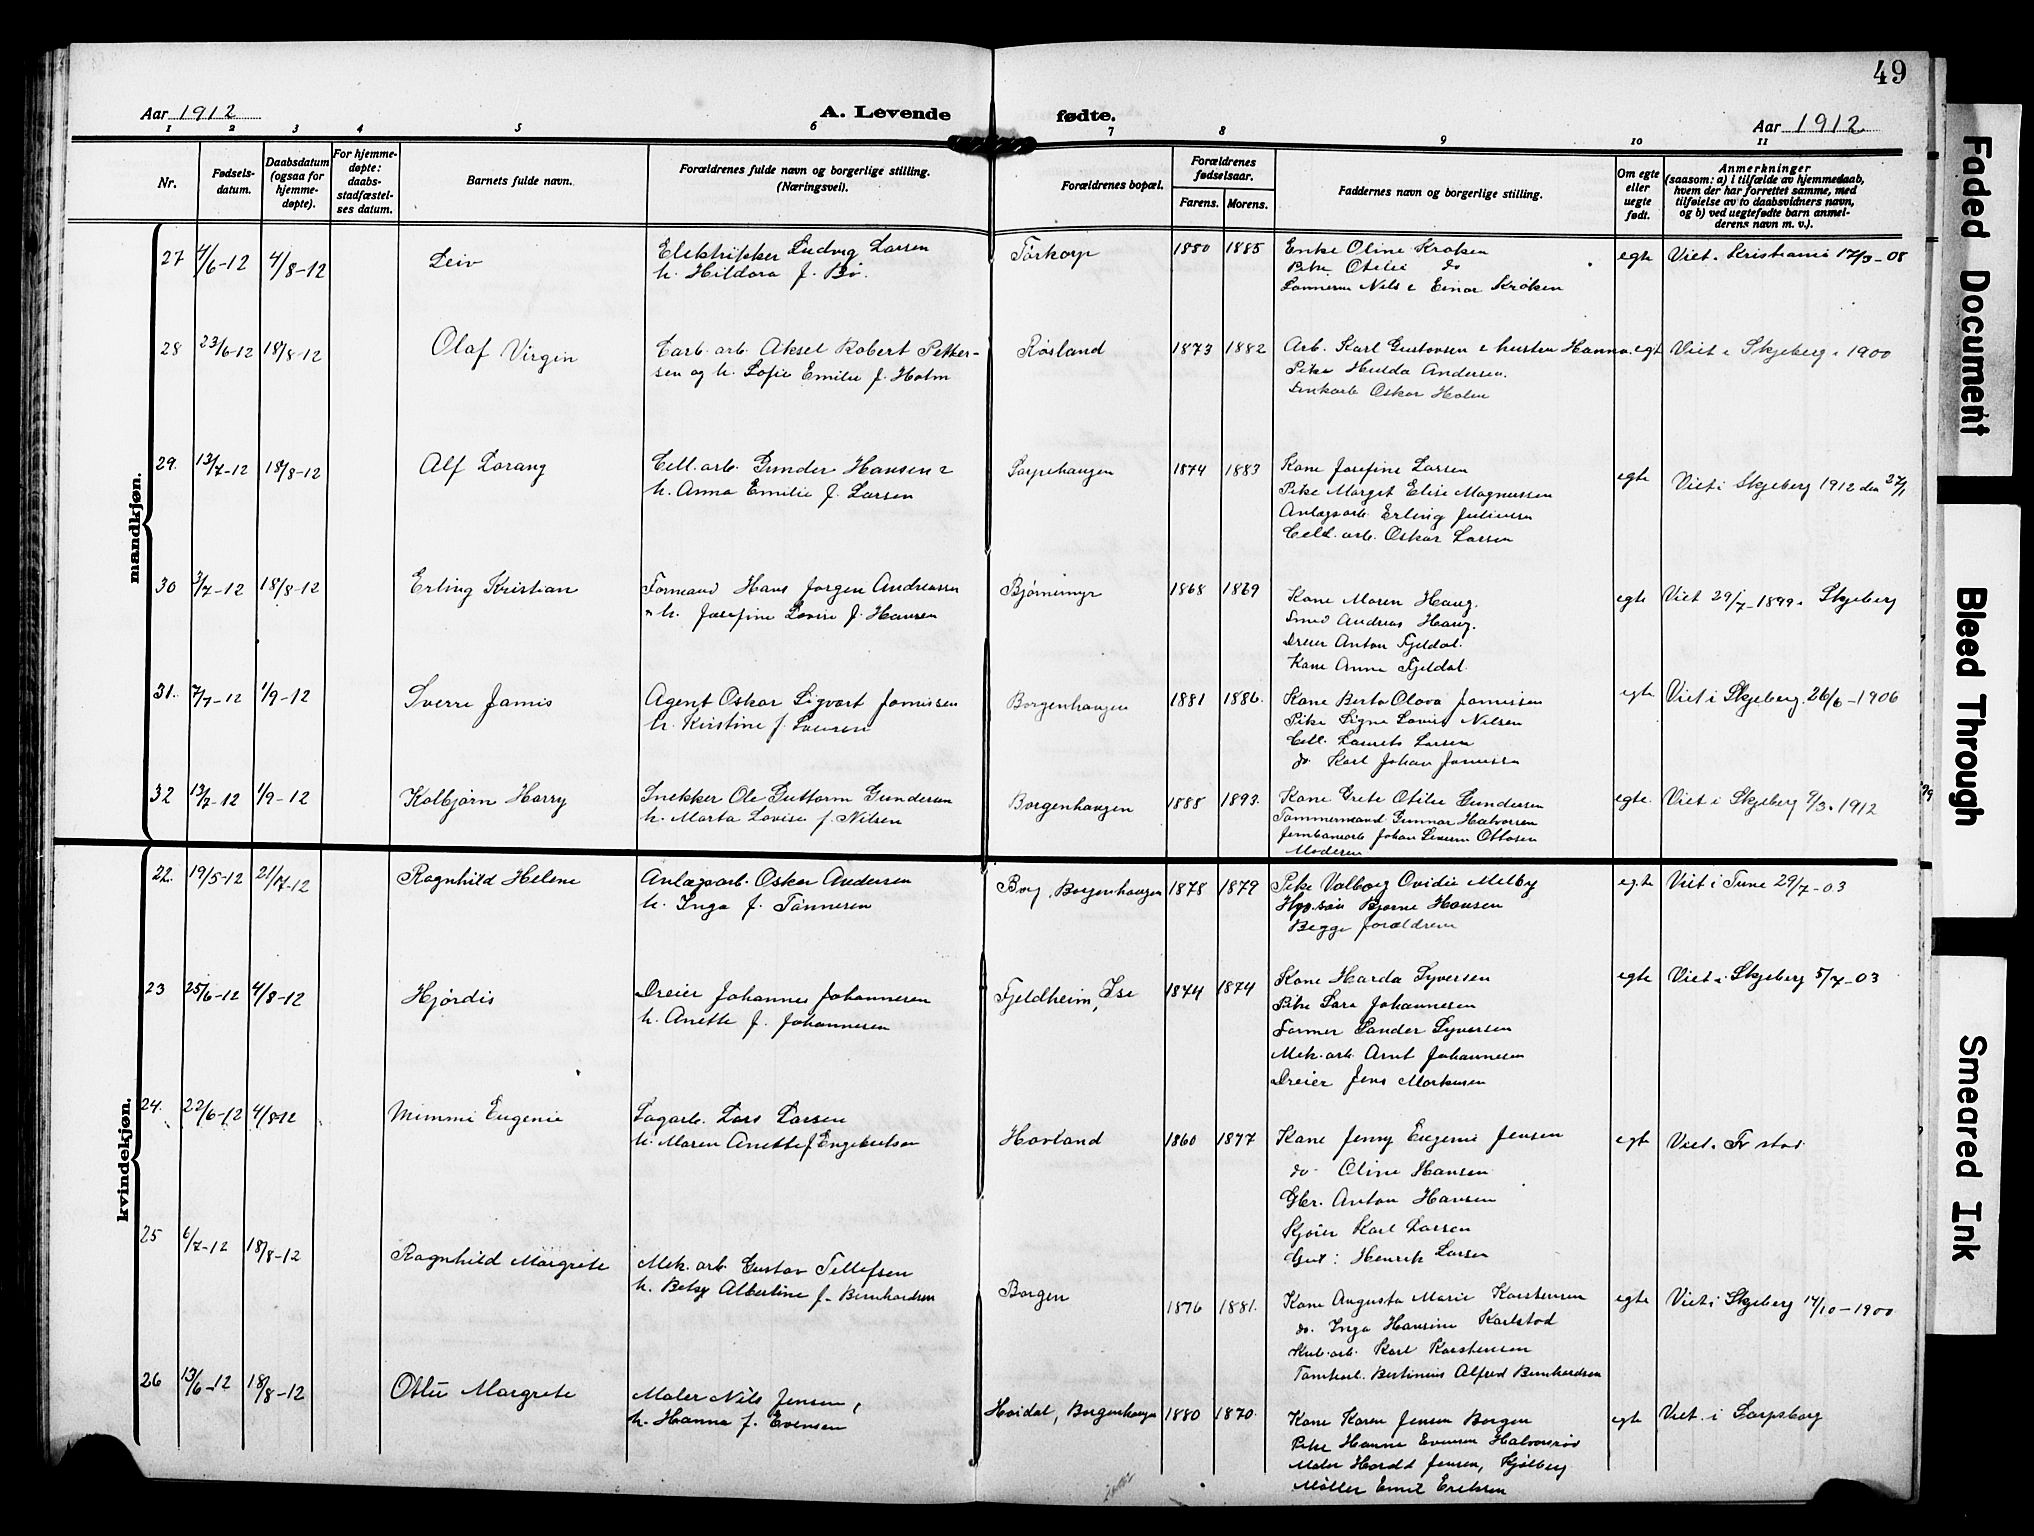 49
Aar 1912 A. Levende fødte. Aar 1912
1 2 3 4 5 6 7 8 9 10 11
Nr.
Fødsels-
datum.
Daabsdatum
(ogsaa for
hjemme-
døpte).
For hjemme-
døpte:
daabs-
stadfæstel-
ses datum.
Barnets fulde navn.
Forældrenes fulde navn og borgerlige stilling.
(Næringsvei).
Forældrenes bopæl.
Forældrenes
fødselsaar.
Farens. Morens.
Faddernes navn og borgerlige stilling.
Om egte
eller
uegte
født.
Anmerkninger
(saasom: a) i tilfælde av hjemmedaab,
hvem der har forrettet samme, med
tilføielse av to daabsvidners navn,
og b) ved uegtefødte barn anmel-
derens navn m. v.).
mandkjøn.
27 4/6-12 4/8-12 Leiv
Elektrikker Ludvig Larsen
h. Hildora f. Bø.
Torkorp 1880 1885
Enke Oline Kroken
Pike Otelie do
Sønnerne Nils & Einar Krøken
egte Viet i Kristiania 17/3-08
28 23/6-12 18/8-12 Olaf Virgin
Carb. arb. Aksel Robert Petter-
sen og h. Sofie Emilie f. Holm
Røsland 1873 1882
Arb. Karl Gustavsen & hustru Hanna
Pike Hulda Andersen.
Oskar Holm
egt Viet i Skjeberg i 1900
29. 13/7-12 18/8-12 Alf Lorang
Cell. arb. Gunder Hansen &
h. Anna Emilie f. Larsen
Sorpehaugen 1874 1883
Kone Josefine Larsen
Pike Margit Elise Magnussen
Anlægsarb. Erling Juliussen
Cell. arb. Oskar Larsen
egte Viet i Skjeberg 1912 den 27/1
30 3/7-12 18/8-12 Erling Kristian
Formand Hans Jørgen Andreassen
h. Josefine Lovise f. Hansen
Bjørnemyr 1868 1869
Kone Maren Haug.
Smed Andreas Haug.
Dreier Anton Fjeldal.
Kone Anna Fjeldal.
egte Viet 29/7-1899 i Skjeberg
31. 7/7-12 1/9-12 Sverre Jamis
Agent Oskar Sigvart Jamissen
h. Kristine f.
Borgenhaugen 1881 1886.
Kone Berta Olava Jamissen
Pike Signe Lovise Nilsen
Cell. Laurits Larsen
do Karl Johan Jamissen
egte Viet i Skjeberg 26/6-1906
32 13/7-12 1/9-12 Kolbjørn Harry
Snekker Ole Guttorm Gundersen
h. Marta Lovise f. Nilsen
Borgenhaugen 1888 1893.
Kone Grete Otilie Gundersen
Tømmermand Gunnar Halvorsen
Jernbanearb Johan Severin Ottosen
Moderen
egte. Viet i Skjeberg 9/3. 1912
kvindekjøn.
22. 19/5-12 21/7-12 Ragnhild Helene
Anlægsarb. Oskar Andersen
h. Inga f. Tønnesen
Borg, Borgenhaugen 1878 1879
Pike Valborg Ovidie Melby
Bjarne Hansen
Begge forældrene
egte Viet i Tune 29/7-03
23 25/6-12 4/8-12 Hjørdis
Dreier Johannes Johannesen
h. Anette f. Johannesen
Fjeldheim, Ise 1874 1874
Kone Harda Syversen
Pike Sara Johannesen
Former Sander Syversen
Mek. arb. Arnt Johannesen
Dreier Jens Markusen
egte Viet i Skjeberg 5/7-03
24. 22/6-12 4/8-12 Mimmi Eugenie
Sagarb. Lars Larsen
h. Maren Anette f. Engebretsen
Havland 1860 1877
Kone Jenny Eugenie Jensen
do. Oline Hansen
Gbr. Anton Hansen
Kjører Karl Larsen
Gut: Henrik Larsen
egte Viet i Fr stad
25 6/7-12 18/8-12 Ragnhild Margrete
Mek. arb. Gustav Tellefsen
h. Betsy Albertine f. Bernhardsen
Borgen 1876 1881.
Kone Augusta Marie Karstensen
do. Inga Hansine Karlstad
arb. Karl Karstensen
Tomtearb. Bertinius Alfred Bernhardsen
egte Viet i Skjeberg 14/10-1900
26 13/6-12 18/8-12 Ottu Margrete
Maler Nils Jensen,
h. Hanna f. Evensen
Hvidal, Borgenhaugen 1880 1870.
Kone Karen Jensen Borgen
Pike Hanna Evensen Halvorsrød
Maler Harald Jensen, Kjølberg
Møller Emil Eriksen
egte Viet i Sarpsborg
Faded Document
Bleed Through
Smeared Ink